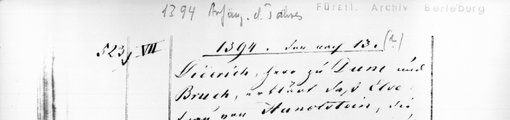 1394 Anfang d. Jahres
Fürstl. Archiv Berleburg
523, VII
1394. Jan nach 13. (?)
Dietrich, Herr zu Dune und
Bruch, erklärt daß Else,
Frau von Hunolstein, die